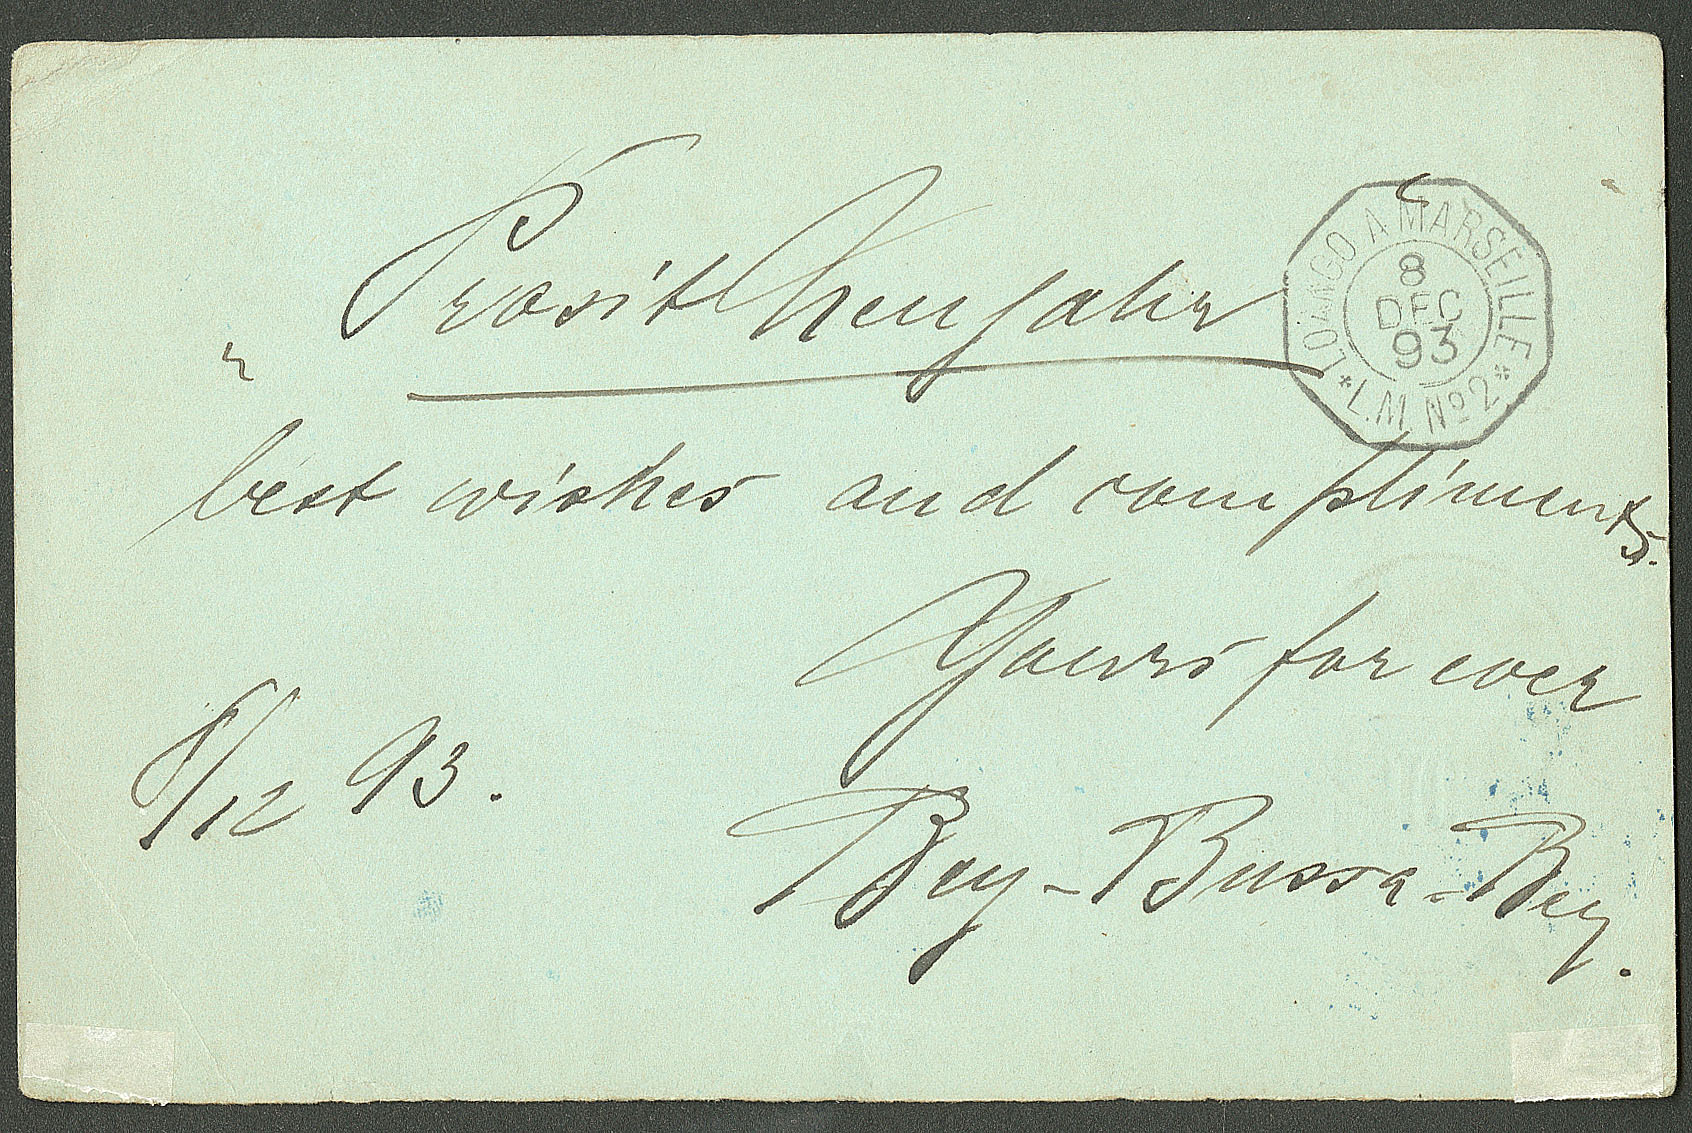 Prosit Neujahr
LOANGO A MARSEILLE
8
DEC
93
* L.M. No 2 *
best wishes and compliments.
Yours for ever
8/12 93.
Bey-Bussa-Bey.